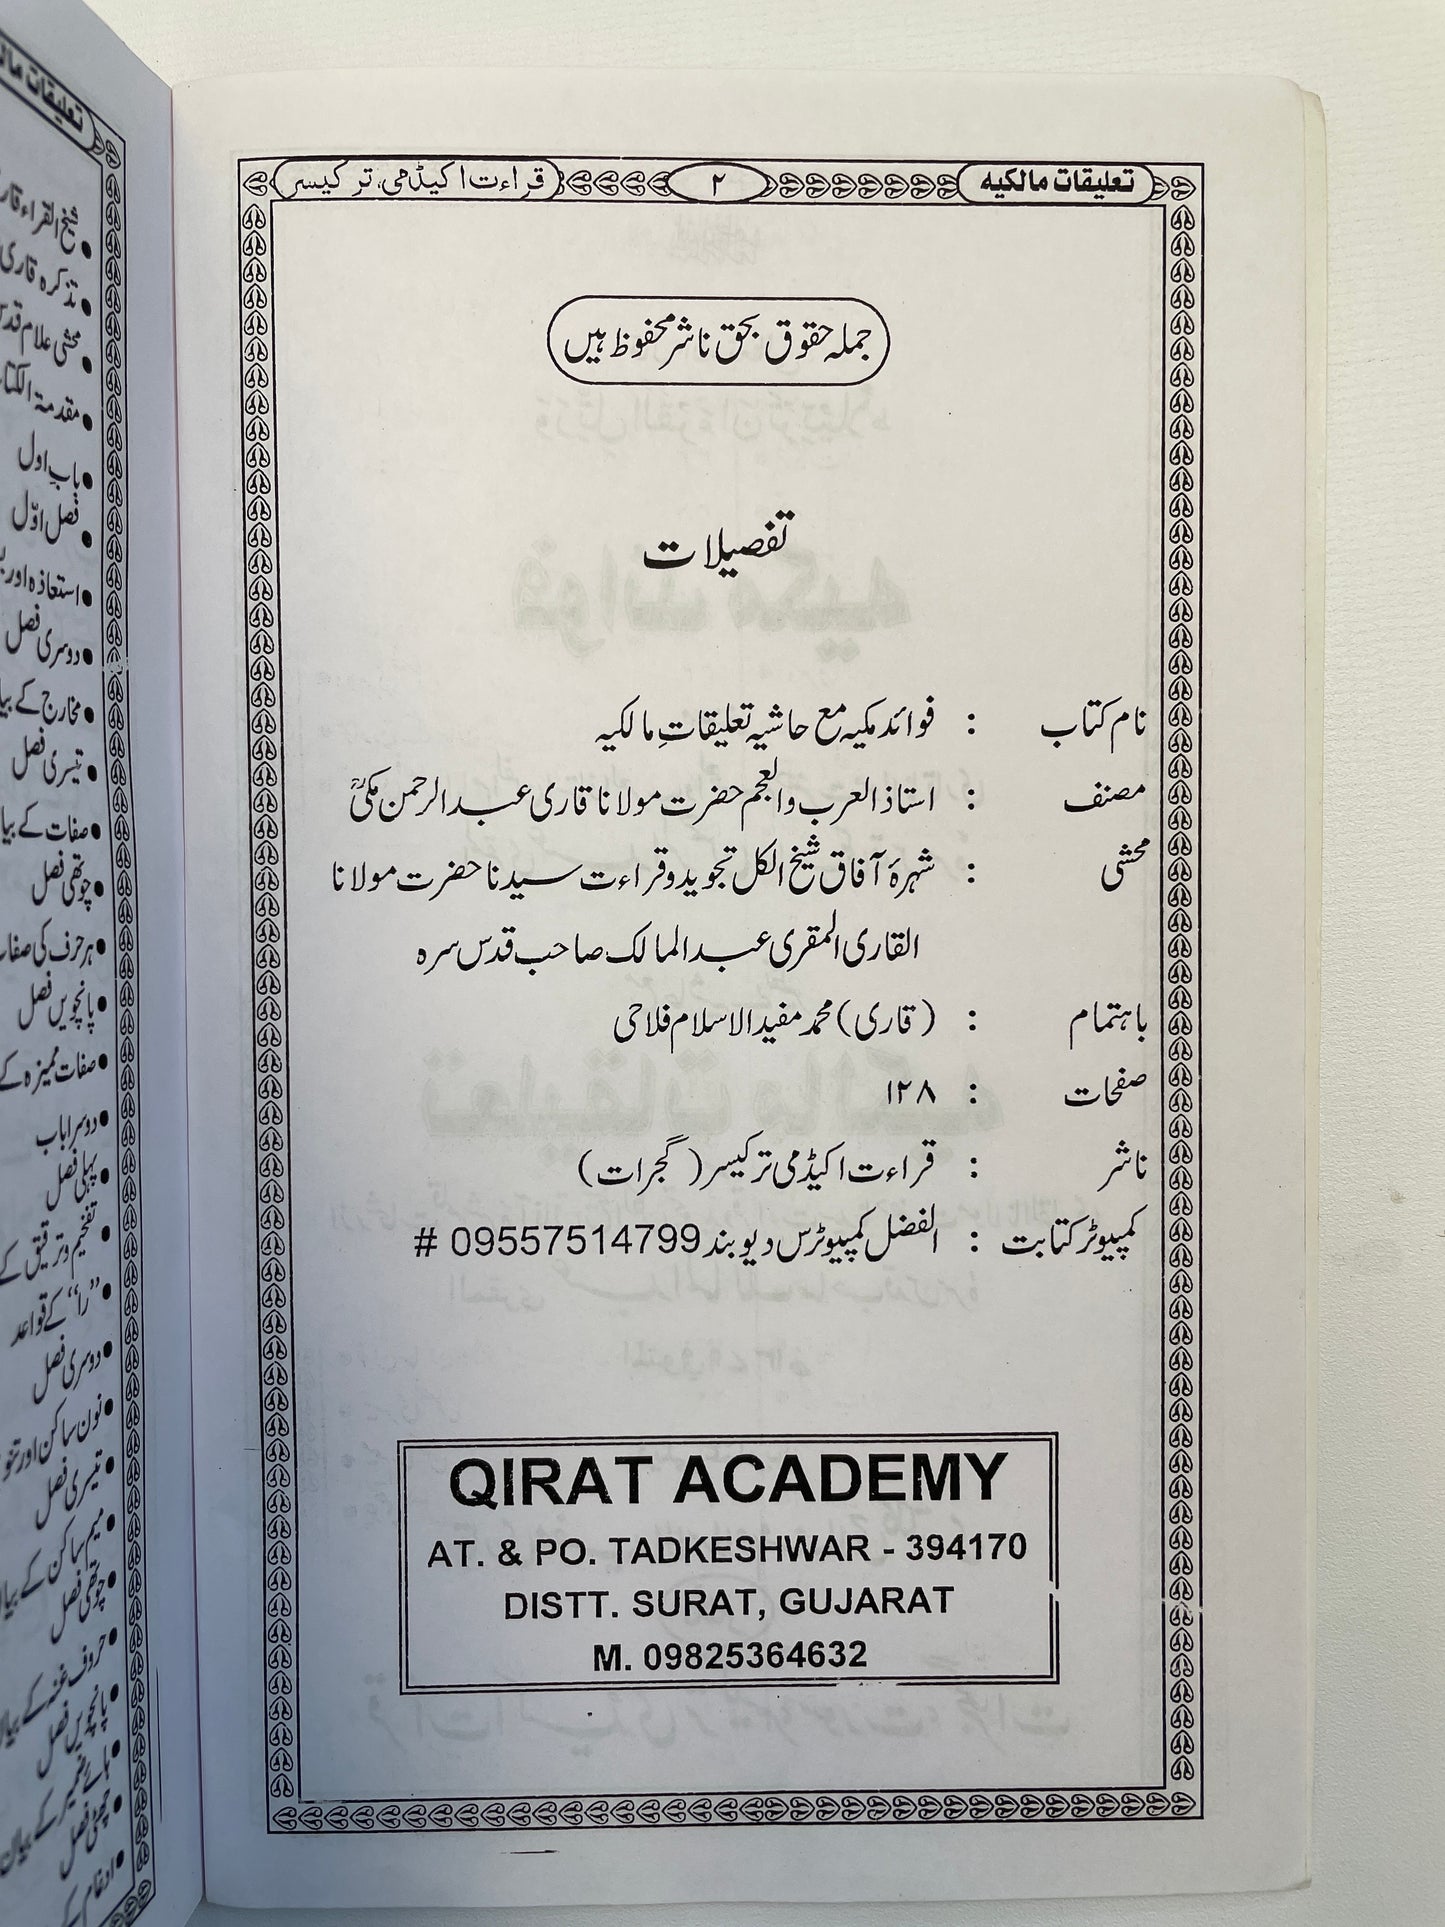 تعلیقات مالکیہ
۲
قراءت اکیڈمی، ترکیسر
جملہ حقوق بحق ناشر محفوظ ہیں
تفصیلات
نام کتاب : فوائد مکیہ مع حاشیہ تعلیقاتِ مالکیہ
مصنف : استاذ العرب والعجم حضرت مولانا قاری عبدالرحمن مکیؒ
محشی : شہرۂ آفاق شیخ الکل تجوید وقراءت سیدنا حضرت مولانا
القاری المقری عبدالمالک صاحب قدس سرہ
باہتمام : (قاری) محمد مفید الاسلام فلاحی
صفحات : ۱۲۸
ناشر : قراءت اکیڈمی ترکیسر (گجرات)
کمپیوٹر کتابت : الفضل کمپیوٹرس دیوبند 09557514799 #
QIRAT ACADEMY
AT. & PO. TADKESHWAR - 394170
DISTT. SURAT, GUJARAT
M. 09825364632
تعلیقات
شیخ القراء
تذکرہ قاری
محشی علام
باب اول
فصل اوّل
استعاذہ اور
دوسری فصل
مخارج کے
تیسری فصل
صفات کے
چوتھی فصل
ہر حرف کی
پانچویں فصل
صفات ممیزہ کے
دوسرا باب
پہلی فصل
تفخیم وترقیق کے
"را" کے قواعد
دوسری فصل
نون ساکن اور
تیسری فصل
میم ساکن کے
چوتھی فصل
حروف غنہ کے
پانچویں فصل
ہائے ضمیر کے بیان
چھٹی فصل
ادغام کے